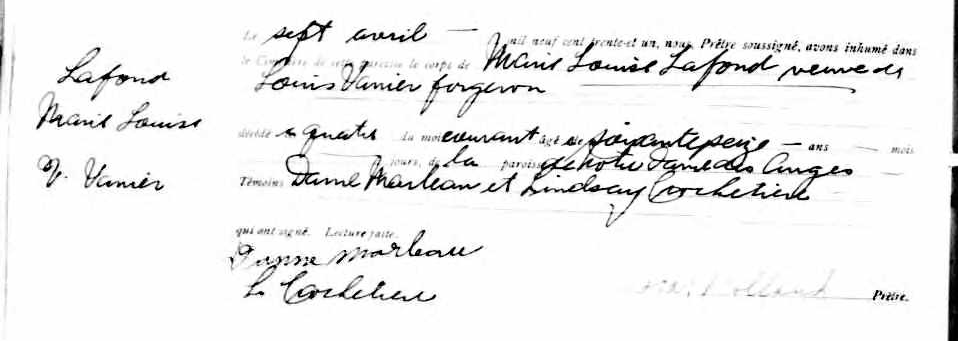 Lafond
Marie Louise
V. Vanier
Le sept avril — mil neuf cent trente-et un, nous, Prêtre soussigné, avons inhumé dans
le Cimetière de cette paroisse le corps de Marie Louise Lafond veuve de
Louis Vanier forgeron
décédée le quatre du mois courant âgée de soixante seize — ans — mois
jours, de la paroisse de notre Dame des Anges
Témoins Danne Marleau et Lindsay Crochetiere
qui ont signé. Lecture faite.
Danne Marleau
L. Crochetiere
Prêtre.